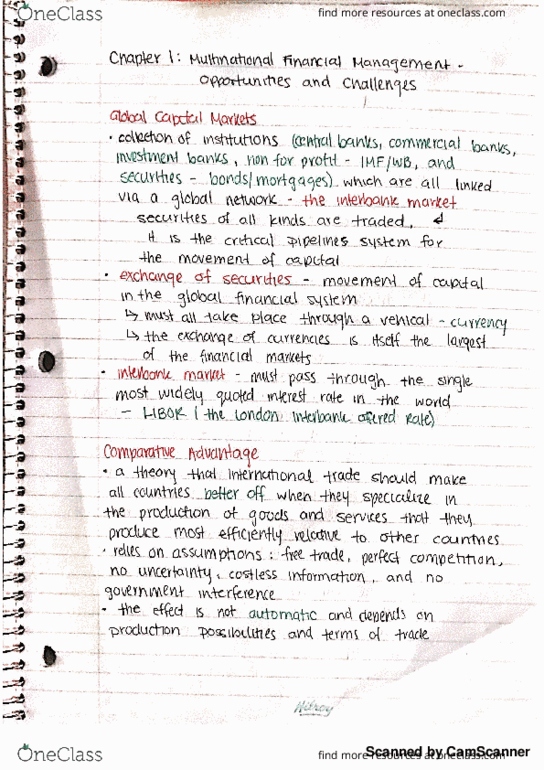 OneClass
find more resources at oneclass.com
Chapter 1: Multinational Financial Management -
Opportunities and Challenges
Global Capital Markets
• collection of institutions (central banks, commercial banks,
investment banks, non for profit - IMF/WB, and
securities - bonds/mortgages) which are all linked
via a global network - the interbank market
securities of all kinds are traded, ↲
it is the critical pipelines system for
the movement of capital
• exchange of securities - movement of capital
in the global financial system
↳ must all take place through a vehical - currency
↳ the exchange of currencies is itself the largest
of the financial markets
• interbank market - must pass through the single
most widely quoted interest rate in the world
- LIBOR (the London interbank offered rate)
Comparative Advantage
• a theory that international trade should make
all countries better off when they specialize in
the production of goods and services that they
produce most efficiently relative to other countries
• relies on assumptions: free trade, perfect competition,
no uncertainty, costless information, and no
government interference
• the effect is not automatic and depends on
production possibilities and terms of trade
Hilroy
OneClass
find more resources at oneclass.com
Scanned by CamScanner